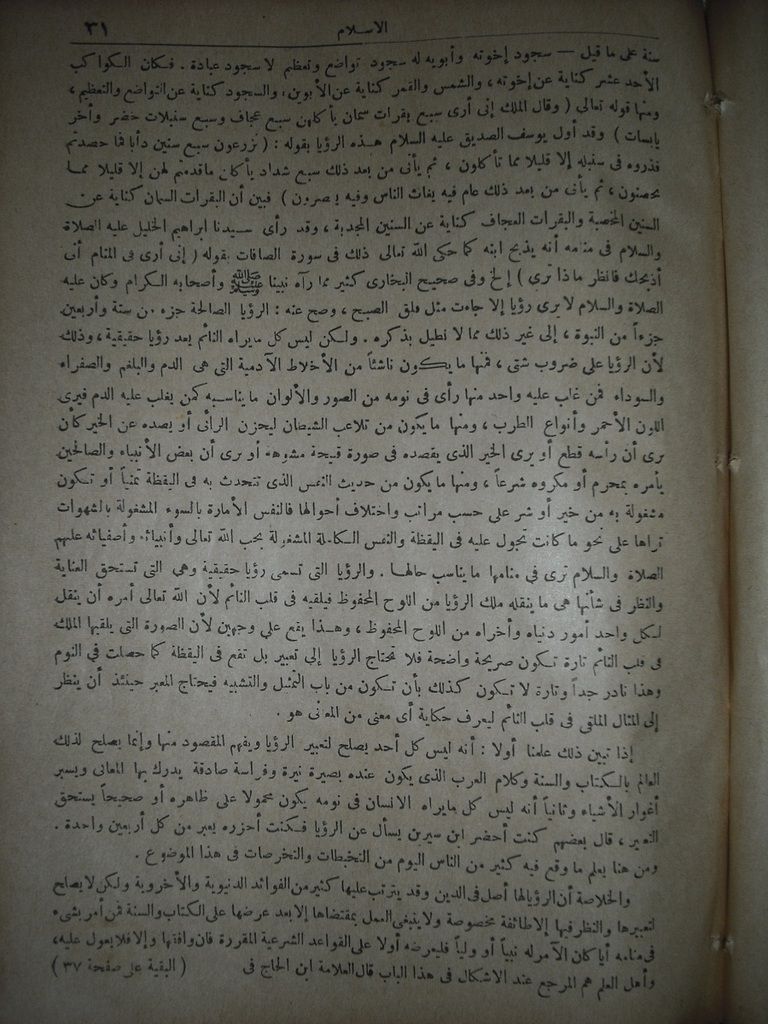 الاسلام ٣١
سنة على ما قيل — سجود إخوته وأبويه له سجود تواضع وتعظيم لا سجود عبادة . فكان الكواكب
الأحد عشر كناية عن إخوته ، والشمس والقمر كناية عن الأبوين ، والسجود كناية عن التواضع والتعظيم ،
ومنها قوله تعالى ( وقال الملك إنى أرى سبع بقرات سمان يأكلهن سبع عجاف وسبع سنبلات خضر وأخر
يابسات ) وقد أول يوسف الصديق عليه السلام هذه الرؤيا بقوله : ( تزرعون سبع سنين دأبا فما حصدتم
فذروه فى سنبله إلا قليلا مما تأكلون ، ثم يأتى من بعد ذلك سبع شداد يأكلن ماقدمتم لهن إلا قليلا مما
تحصنون ، ثم يأتى من بعد ذلك عام فيه يغاث الناس وفيه يعصرون ) فبين أن البقرات السمان كناية عن
السنين المخصبة والبقرات العجاف كناية عن السنين المجدبة ، وقد رأى سيدنا ابراهيم الخليل عليه الصلاة
والسلام فى منامه أنه يذبح ابنه كما حكى الله تعالى ذلك فى سورة الصافات بقوله ( إنى أرى فى المنام أنى
أذبحك فانظر ماذا ترى ) إلخ وفى صحيح البخارى كثير مما رآه نبينا ﷺ وأصحابه الكرام وكان عليه
الصلاة والسلام لا يرى رؤيا إلا جاءت مثل فلق الصبح ، وصح عنه : الرؤيا الصالحة جزء من ستة وأربعين
جزءاً من النبوة ، إلى غير ذلك مما لا نطيل بذكره . ولكن ليس كل مايراه النائم يعد رؤيا حقيقية ، وذلك
لأن الرؤيا على ضروب شتى ، فمنها ما يكون ناشئاً من الأخلاط الآدمية التى هى الدم والبلغم والصفراء
والسوداء فمن غلب عليه واحد منها رأى فى نومه من الصور والألوان ما يناسبه كمن يغلب عليه الدم فيرى
اللون الأحمر وأنواع الطرب ، ومنها مايكون من تلاعب الشيطان ليحزن الرائى أو يصده عن الخير كأن
يرى أن رأسه قطع أو يرى الخير الذى يقصده فى صورة قبيحة مشوهة أو يرى أن بعض الأنبياء والصالحين
يأمره بمحرم أو مكروه شرعاً ، ومنها ما يكون من حديث النفس الذى تتحدث به فى اليقظة تمنياً أو تكون
مشغولة به من خير أو شر على حسب مراتب واختلاف أحوالها فالنفس الأمارة بالسوء المشغولة بالشهوات
تراها على نحو ما كانت تجول عليه فى اليقظة والنفس الكاملة المشغولة بحب الله تعالى وأنبيائه وأصفيائه عليهم
الصلاة والسلام ترى في منامها ما يناسب حالها . والرؤيا التى تسمى رؤيا حقيقية وهى التى تستحق العناية
والنظر فى شأنها هى ما ينقله ملك الرؤيا من اللوح المحفوظ فيلقيه فى قلب النائم لأن الله تعالى أمره أن ينقل
لكل واحد أمور دنياه وأخراه من اللوح المحفوظ ، وهذا يقع على وجهين لأن الصورة التى يلقيها الملك
فى قلب النائم تارة تكون صريحة واضحة فلا تحتاج الرؤيا إلى تعبير بل تقع فى اليقظة كما حصلت في النوم
وهذا نادر جداً وتارة لا تكون كذلك بأن تكون من باب التمثل والتشبيه فيحتاج المعبر حينئذ أن ينظر
إلى المثال الملقى فى قلب النائم ليعرف حكاية أى معنى من المعانى هو .
إذا تبين ذلك علمنا أولا : أنه ليس كل أحد يصلح لتعبير الرؤيا ويفهم المقصود منها وإنما يصلح لذلك
العالم بالكتاب والسنة وكلام العرب الذى يكون عنده بصيرة نيرة وفراسة صادقة يدرك بها المعانى ويسبر
أغوار الأشياء وثانياً أنه ليس كل مايراه الانسان فى نومه يكون محمولا على ظاهره أو صحيحاً يستحق
التعبير ، قال بعضهم كنت أحضر ابن سيرين يسأل عن الرؤيا فكنت أحزره يعبر من كل أربعين واحدة .
ومن هنا يعلم ما وقع فيه كثير من الناس اليوم من التخبطات والتخرصات فى هذا الموضوع .
والخلاصة أن الرؤيالها أصل فى الدين وقد يترتب عليها كثير من الفوائد الدنيوية والأخروية ولكن لا يصلح
لتعبيرها والنظر فيها إلا طائفة مخصوصة ولا ينبغى العمل بمقتضاها إلا بعد عرضها على الكتاب والسنة فمن أمر بشىء
فى منامه أيا كان الآمر له نبياً أو ولياً فليعرضه أولا على القواعد الشرعية المقررة فان وافقها وإلا فلا يعول عليه،
وأهل العلم هم المرجع عند الاشكال فى هذا الباب قال العلامة ابن الحاج فى ( البقية على صفحة ٣٧ )